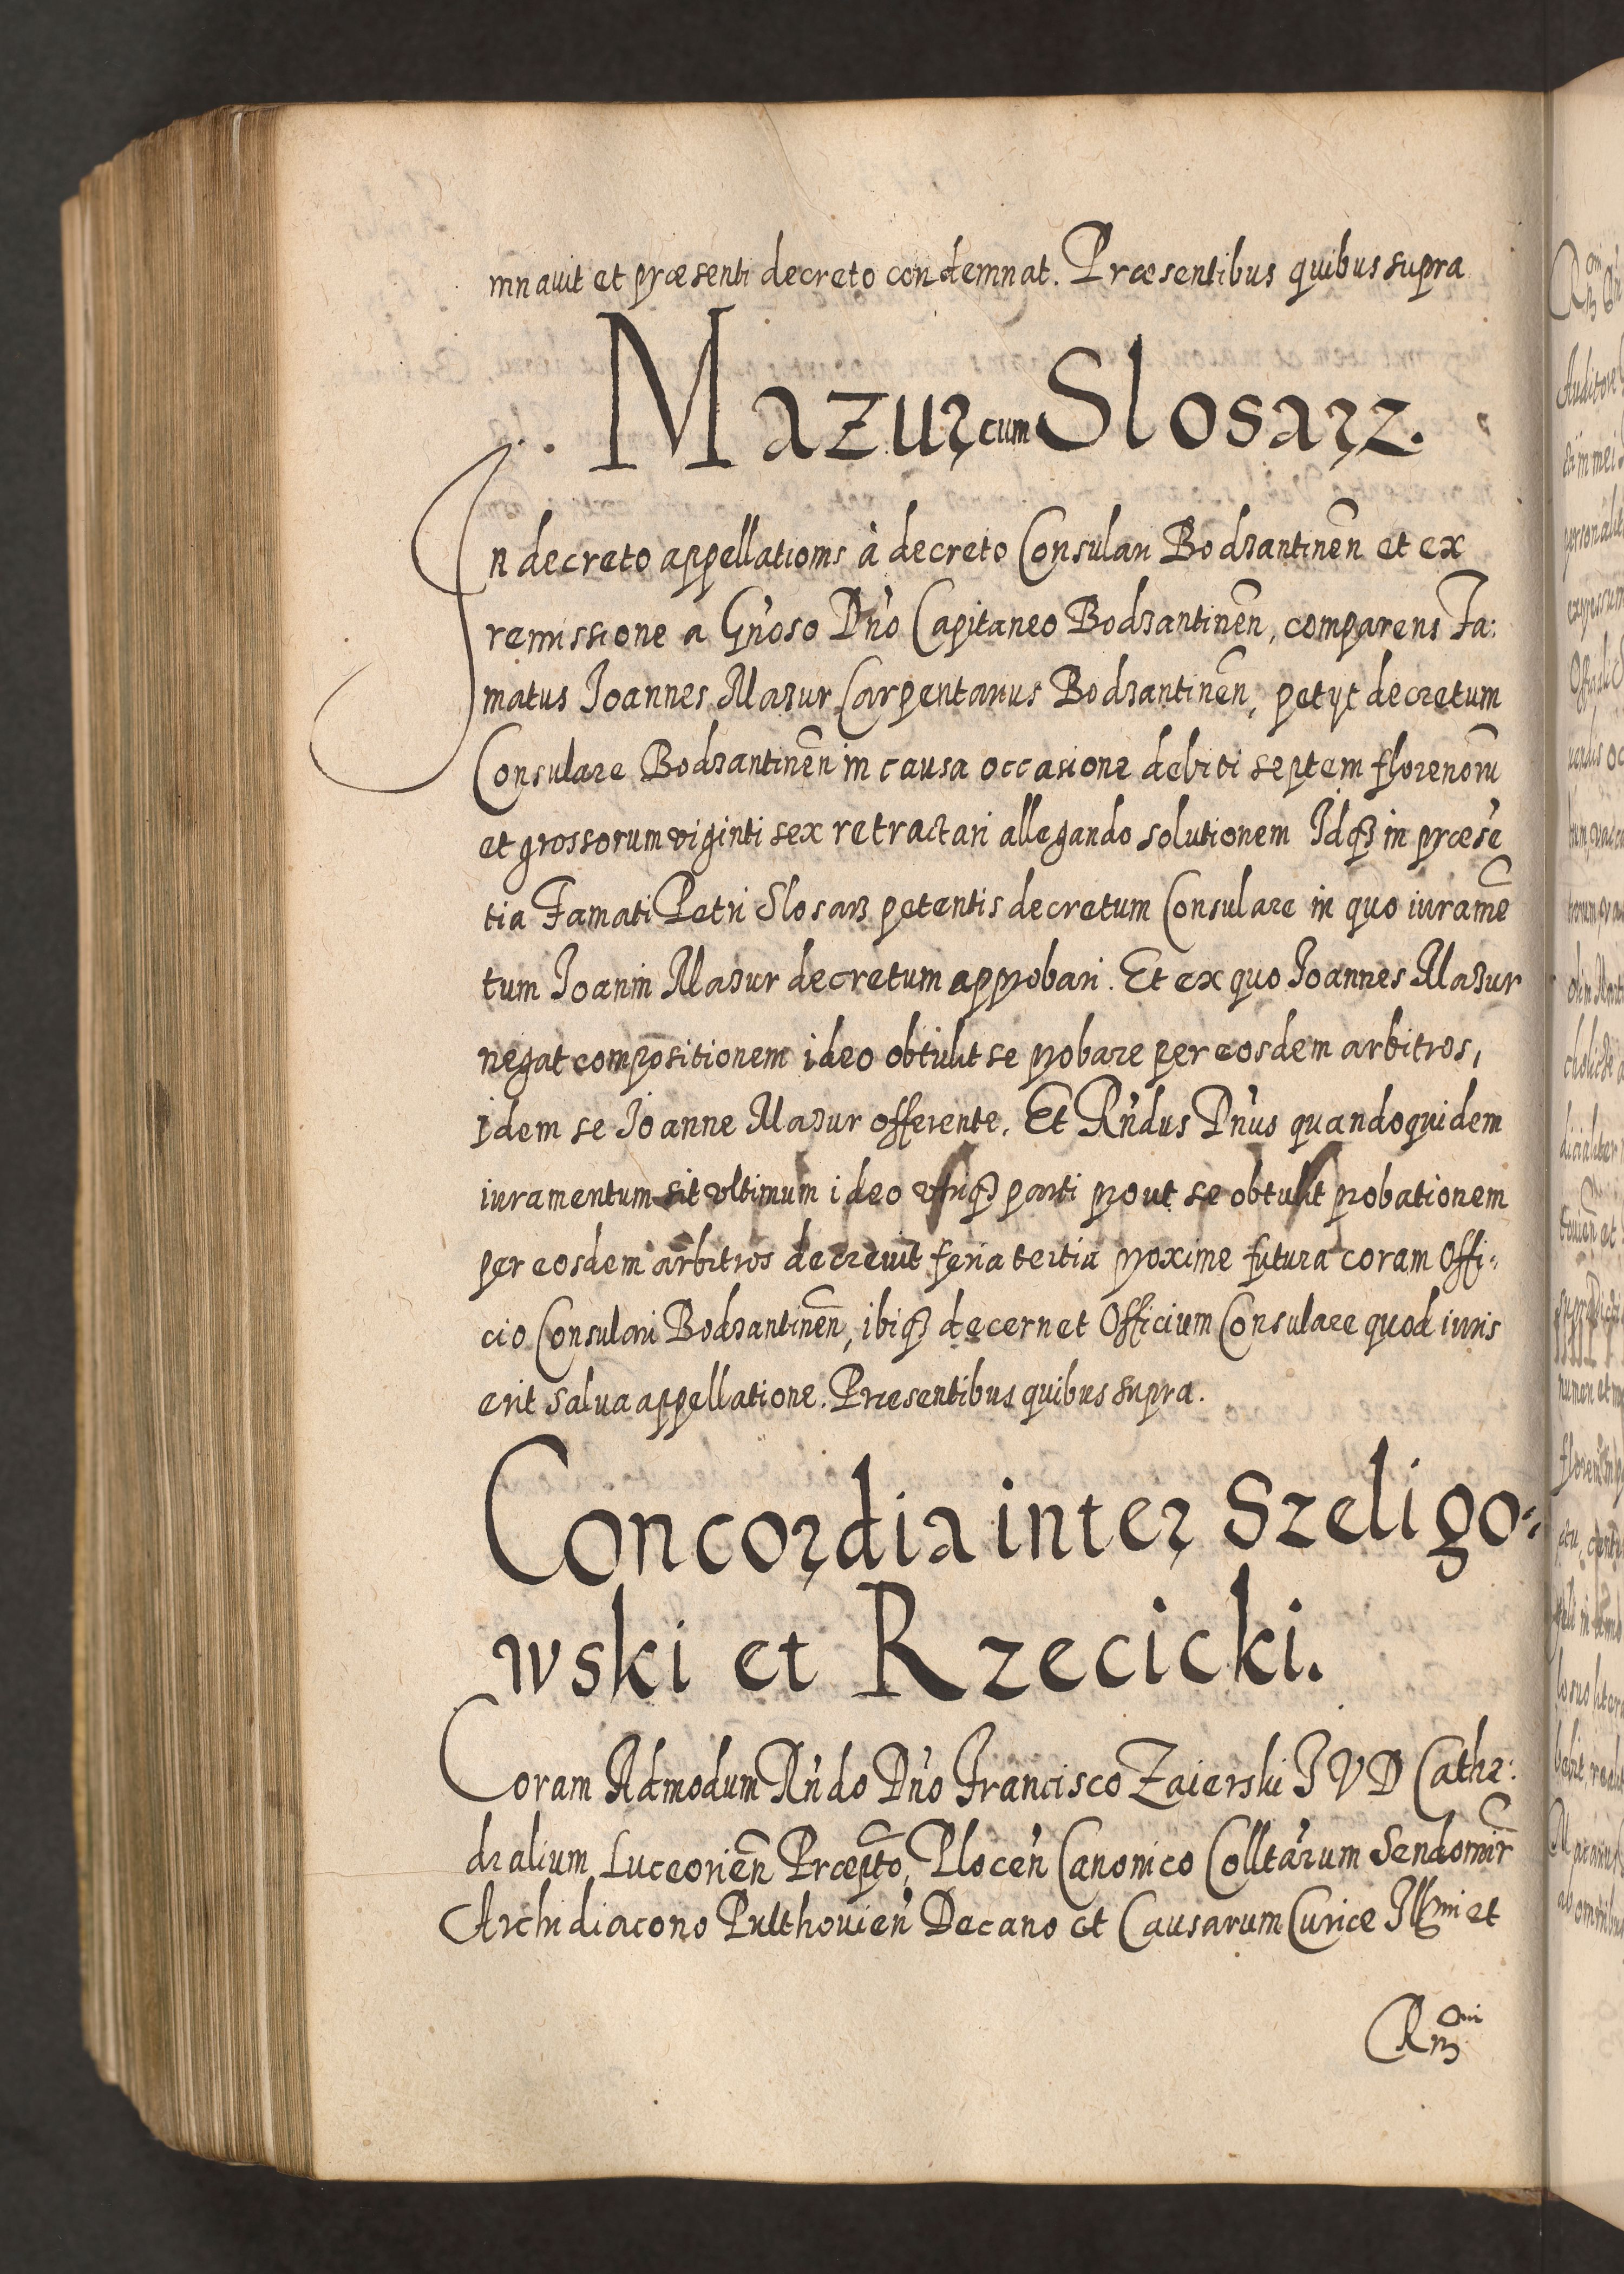 mnauit et præsenti decreto condemnat. Præsentibus quibus supra
Mazur cum Slosarz.
In decreto appellationis à decreto Consulari Bodzantineñ et ex
remissione a Gñoso Dño Capitaneo Bodzantineñ, comparens Fa:
matus Ioannes Mazur Carpentarius Bodzantineñ, petyt decretum
Consulare Bodzantineñ in causa occasione debiti septem florenorũ
et grossorum viginti sex retractari allegando solutionem Idqȝ in præsẽ
tia Famati Petri Slosarz petentis decretum Consulare in quo iuramẽ
tum Ioanni Mazur decretum approbari. Et ex quo Ioannes Mazur
negat compositionem ideo obtulit se probare per eosdem arbitros,
idem se Ioanne Mazur offerente. Et Rñdus Dñus quandoquidem
iuramentum sit vltimum ideo vtriqȝ parti prout se obtulit probationem
per eosdem arbitros decreuit feria tertia proxime futura coram Offi:
cio Consulari Bodzantineñ, ibiqȝ decernet Officium Consulare quod iuris
erit salua appellatione. Præsentibus quibus supra.
Concordia inter Szeligo:
wski et Rzecicki.
Coram Admodum Rñdo Dño Francisco Zaierski I V D Cathe:
dralium Luceorieñ Præpto, Ploceñ Canonico Colltarum Sendomir̃
Archidiacono Pulthouieñ Decano et Causarum Curiæ Illmi et
Rmi